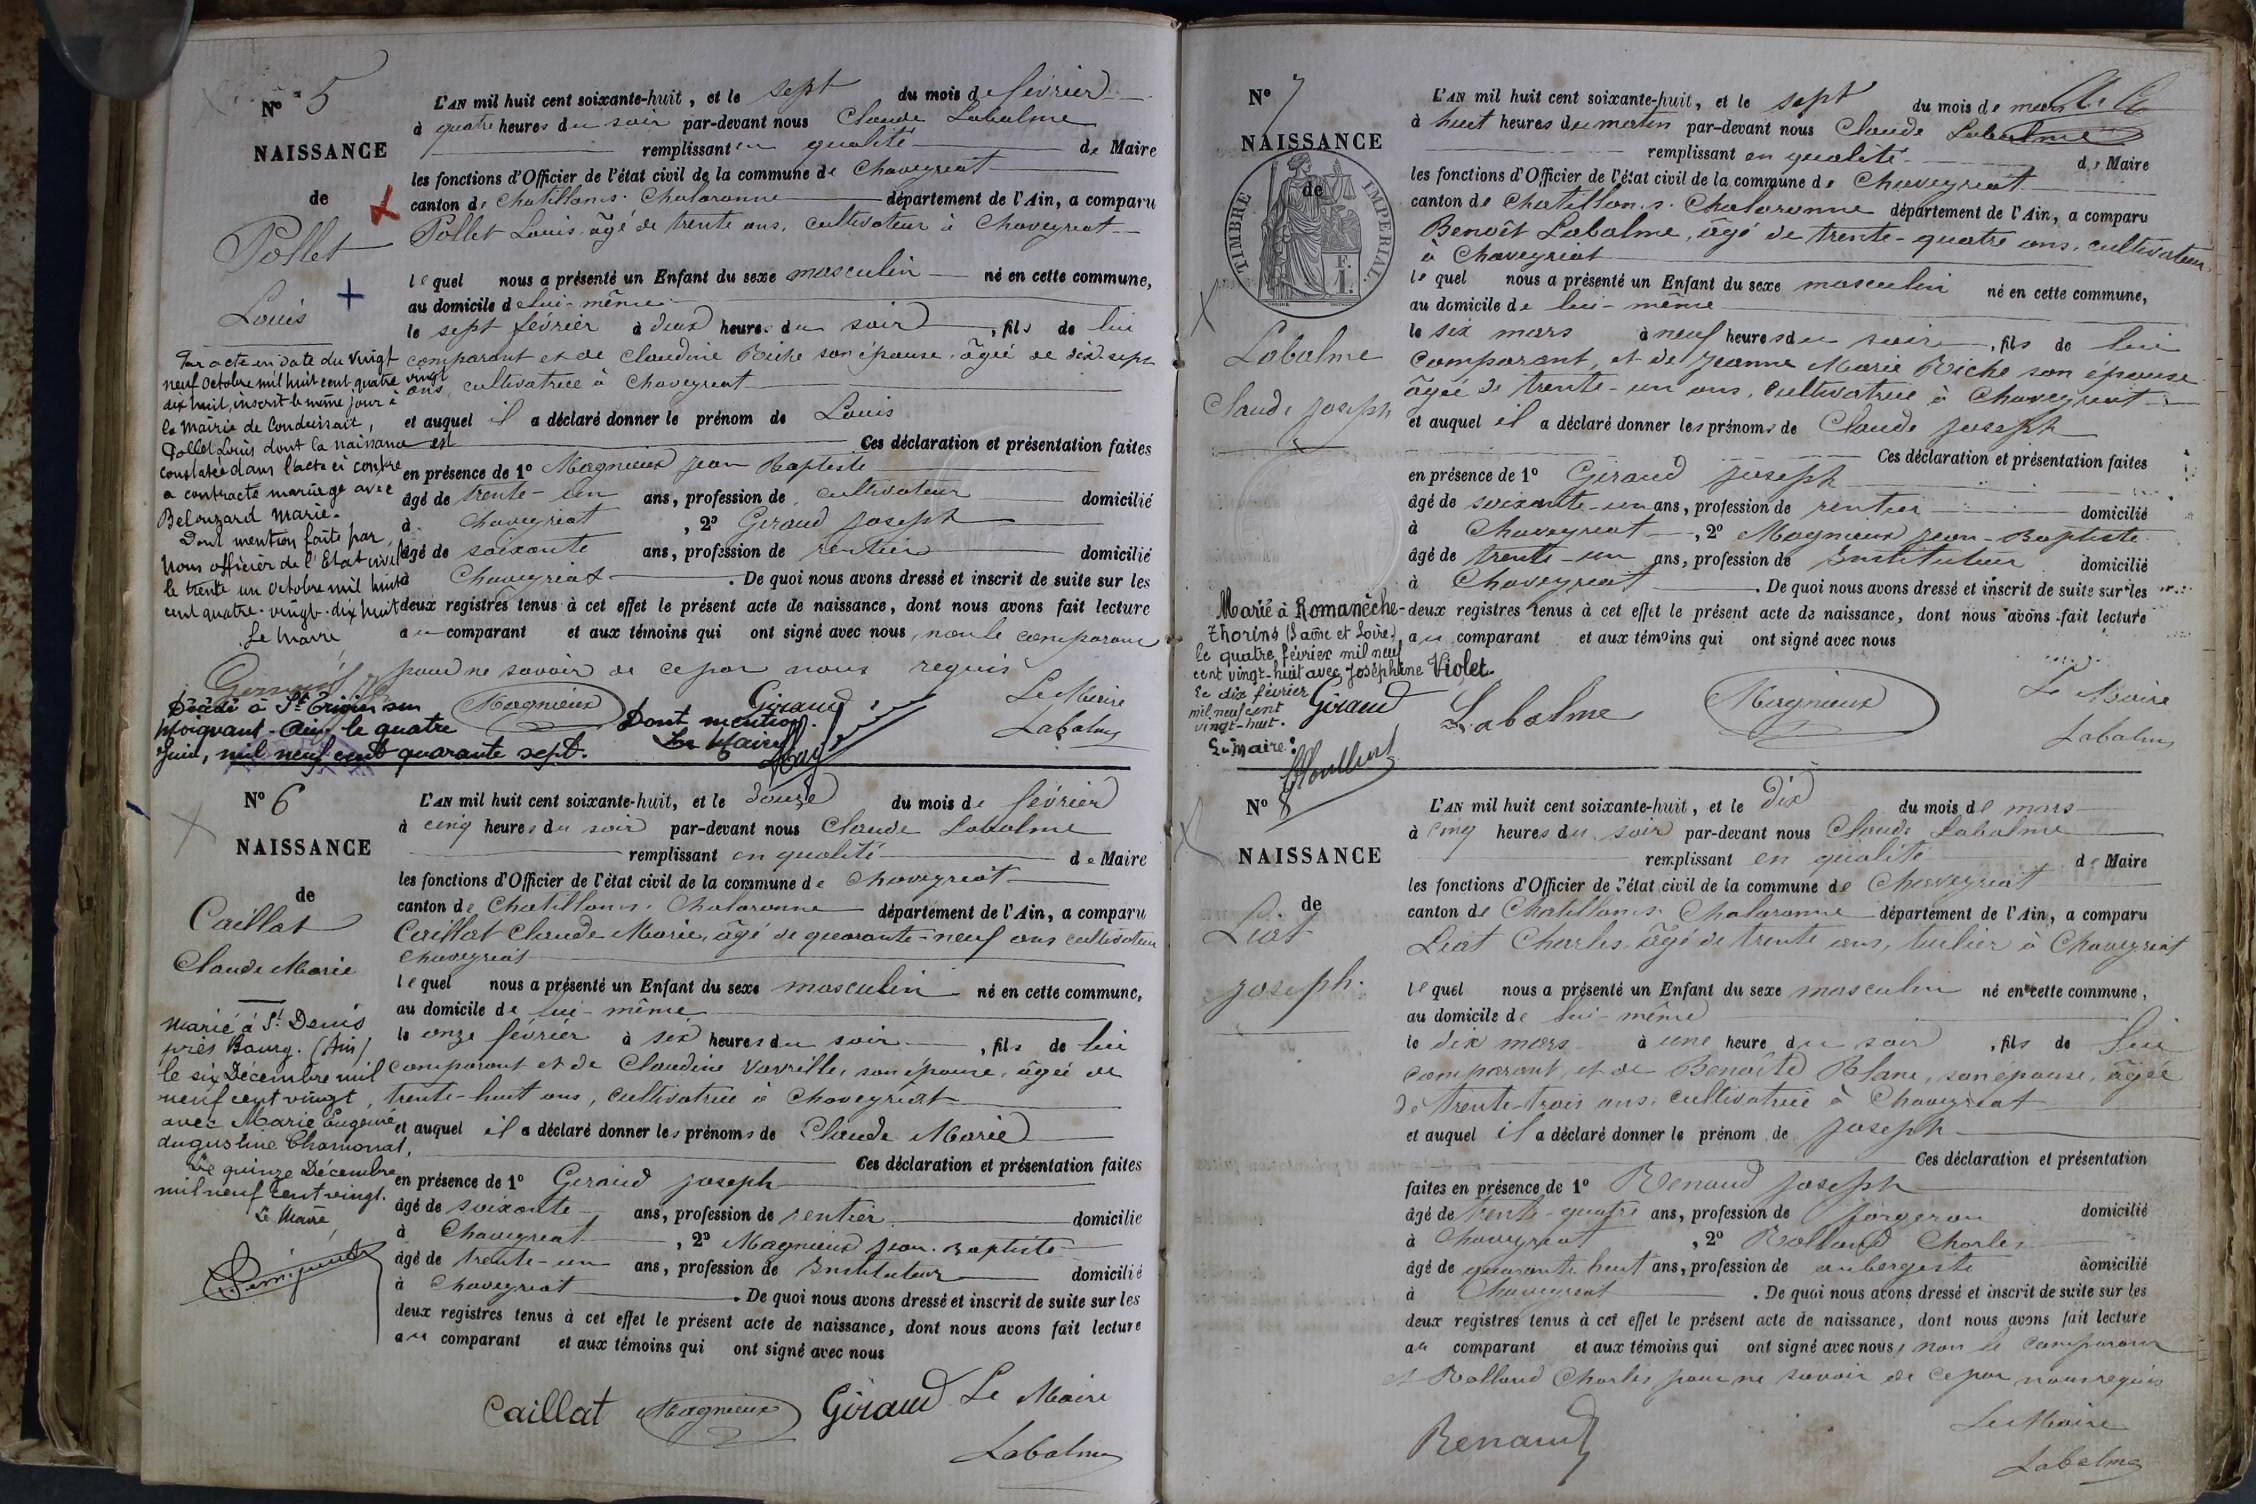 N° 5
NAISSANCE
de
Pollet
Louis
Par acte en date du vingt
neuf octobre mil huit cent quatre vingt
dix huit, inscrit le même jour à
la Mairie de Condeissiat,
Pollet Louis dont la naissance est
constatée dans l'acte ci contre
a contracté mariage avec
Belouzard Marie.
Dont mention faite par
Nous officier de l'Etat civil
le trente un octobre mil huit
cent quatre-vingt-dix huit
Le Maire
Décédé à St Trivier sur
Moignans - Ain - le quatre
Juin, mil neuf cent quarante sept.
Dont mention.
Le Maire
L'AN mil huit cent soixante-huit, et le sept du mois de février
à quatre heures du soir par-devant nous Claude Labalme
remplissant en qualité de Maire
les fonctions d'Officier de l'état civil de la commune de Chaveyriat
canton de Chatillon s. Chalaronne département de l'Ain, a comparu
Pollet Louis, âgé de trente ans, cultivateur à Chaveyriat
lequel nous a présenté un Enfant du sexe masculin né en cette commune,
au domicile de lui-même
le sept février à deux heures du soir, fils de lui
comparant et de Claudine Riche son épouse, âgée de dix-sept
ans, cultivatrice à Chaveyriat
et auquel il a déclaré donner le prénom de Louis
Ces déclaration et présentation faites
en présence de 1° Magnieux Jean Baptiste
âgé de trente-un ans, profession de cultivateur domicilié
à Chaveyriat, 2° Giraud Joseph
âgé de soixante ans, profession de rentier domicilié
à Chaveyriat. De quoi nous avons dressé et inscrit de suite sur les
deux registres tenus à cet effet le présent acte de naissance, dont nous avons fait lecture
au comparant et aux témoins qui ont signé avec nous, non le comparant
pour ne savoir de ce par nous requis
Magnieux Giraud Le Maire
Labalme
N° 6
NAISSANCE
de
Caillat
Claude Marie
Marié à St Denis
près Bourg. (Ain)
le six Décembre mil
neuf cent vingt,
avec Marie Eugénie
Augustine Chamonal,
Le quinze Décembre
mil neuf cent vingt.
Le Maire,
L'AN mil huit cent soixante-huit, et le douze du mois de février
à cinq heures du soir par-devant nous Claude Labalme
remplissant en qualité de Maire
les fonctions d'Officier de l'état civil de la commune de Chaveyriat
canton de Chatillon s. Chalaronne département de l'Ain, a comparu
Caillat Claude Marie, âgé de quarante-neuf ans cultivateur
Chaveyriat
lequel nous a présenté un Enfant du sexe masculin né en cette commune,
au domicile de lui-même
le onze février à six heures du soir, fils de lui
comparant et de Claudine Vavrille, son épouse, âgée de
trente-huit ans, cultivatrice à Chaveyriat
et auquel il a déclaré donner les prénoms de Claude Marie
Ces déclaration et présentation faites
en présence de 1° Giraud Joseph
âgé de soixante ans, profession de rentier domicilié
à Chaveyriat, 2° Magnieux Jean-Baptiste
âgé de trente-un ans, profession de Instituteur domicilié
à Chaveyriat. De quoi nous avons dressé et inscrit de suite sur les
deux registres tenus à cet effet le présent acte de naissance, dont nous avons fait lecture
au comparant et aux témoins qui ont signé avec nous
Caillat Magnieux Giraud Le Maire
Labalme
N° 7
NAISSANCE
de
TIMBRE IMPÉRIAL
F. 1.
Labalme
Claude Joseph
Marié à Romanèche-
Thorins (Saône et Loire),
le quatre février mil neuf
cent vingt-huit avec Joséphine Violet.
Le dix février
mil neuf cent
vingt-huit.
Le Maire:
L'AN mil huit cent soixante-huit, et le sept du mois de mars
à huit heures du matin par-devant nous Claude Labalme
remplissant en qualité de Maire
les fonctions d'Officier de l'état civil de la commune de Chaveyriat
canton de Chatillon s. Chalaronne département de l'Ain, a comparu
Benoît Labalme, âgé de trente-quatre ans, cultivateur
à Chaveyriat
lequel nous a présenté un Enfant du sexe masculin né en cette commune,
au domicile de lui-même
le six mars à neuf heures du soir, fils de lui
comparant, et de Jeanne Marie Riche son épouse
âgée de trente-un ans, cultivatrice à Chaveyriat
et auquel il a déclaré donner les prénoms de Claude Joseph
Ces déclaration et présentation faites
en présence de 1° Giraud Joseph
âgé de soixante-un ans, profession de rentier domicilié
à Chaveyriat, 2° Magnieux Jean-Baptiste
âgé de trente-un ans, profession de Instituteur domicilié
à Chaveyriat. De quoi nous avons dressé et inscrit de suite sur les
deux registres tenus à cet effet le présent acte de naissance, dont nous avons fait lecture
au comparant et aux témoins qui ont signé avec nous
Giraud Labalme Magnieux Le Maire
Labalme
N° 8
NAISSANCE
de
Liat
Joseph.
L'AN mil huit cent soixante-huit, et le dix du mois de mars
à cinq heures du soir par-devant nous Claude Labalme
remplissant en qualité de Maire
les fonctions d'Officier de l'état civil de la commune de Chaveyriat
canton de Chatillon s. Chalaronne département de l'Ain, a comparu
Liat Charles, âgé de trente ans, tuilier à Chaveyriat
lequel nous a présenté un Enfant du sexe masculin né en cette commune,
au domicile de lui-même
le dix mars à une heure du soir, fils de lui
comparant, et de Benoîte Blanc, son épouse, âgée
de trente-trois ans, cultivatrice à Chaveyriat
et auquel il a déclaré donner le prénom de Joseph
Ces déclaration et présentation
faites en présence de 1° Renaud Joseph
âgé de trente-quatre ans, profession de forgeron domicilié
à Chaveyriat, 2° Rolland Charles
âgé de quarante huit ans, profession de aubergiste domicilié
à Chaveyriat. De quoi nous avons dressé et inscrit de suite sur les
deux registres tenus à cet effet le présent acte de naissance, dont nous avons fait lecture
au comparant et aux témoins qui ont signé avec nous, non le comparant
et Rolland Charles pour ne savoir de ce par nous requis
Renaud Le Maire
Labalme